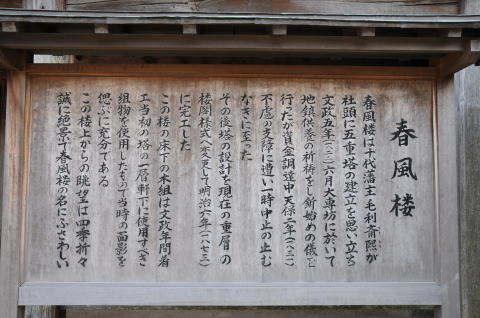 春風楼
春風楼は十代藩主毛利斉熙が
社頭に五重塔の建立を思い立ち
文政五年(一八二二)六月大専坊に於いて
地鎮供養の祈祷をし釿始めの儀を
行ったが資金調達中天保二年(一八三一)
不慮の支障に遭い一時中止の止む
なきに至った
その後塔の設計を現在の重層の
楼閣様式へ変更して明治六年(一八七三)
に完工した
この楼の床下の木組は文政年間着
工当初の塔の一層軒下に使用すべき
組物を使用したもので当時の面影を
偲ぶに充分である
この楼上からの眺望は四季折々
誠に絶景で春風楼の名にふさわしい